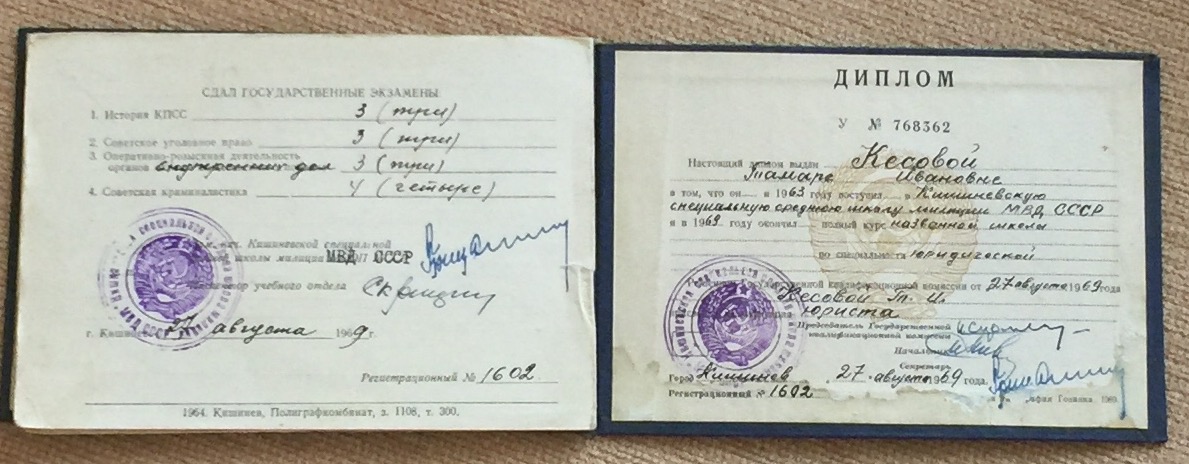 СДАЛ ГОСУДАРСТВЕННЫЕ ЭКЗАМЕНЫ
1. История КПСС 3 (три)
2. Советское уголовное право 3 (три)
3. Оперативно-розыскная деятельность
органов внутренних дел 3 (три)
4. Советская криминалистика 4 (четыре)
нач. Кишиневской специальной
школы милиции МВД СССР
учебного отдела
г. Кишинев 27 августа 1969 г.
Регистрационный № 1602
1964. Кишинев, Полиграфкомбинат, з. 1108, т. 300.
ДИПЛОМ
У № 768362
Настоящий диплом выдан Кесовой
Тамаре Ивановне
в том, что он в 1963 году поступил в Кишиневскую
специальную среднюю школу милиции МВД СССР
и в 1969 году окончил полный курс названной школы
по специальности юридической
Государственной квалификационной комиссии от 27 августа 1969 года
Кесовой Т. И.
юриста
Председатель Государственной
квалификационной комиссии
Начальник
Секретарь
Город Кишинев 27 августа 1969 года.
Регистрационный № 1602